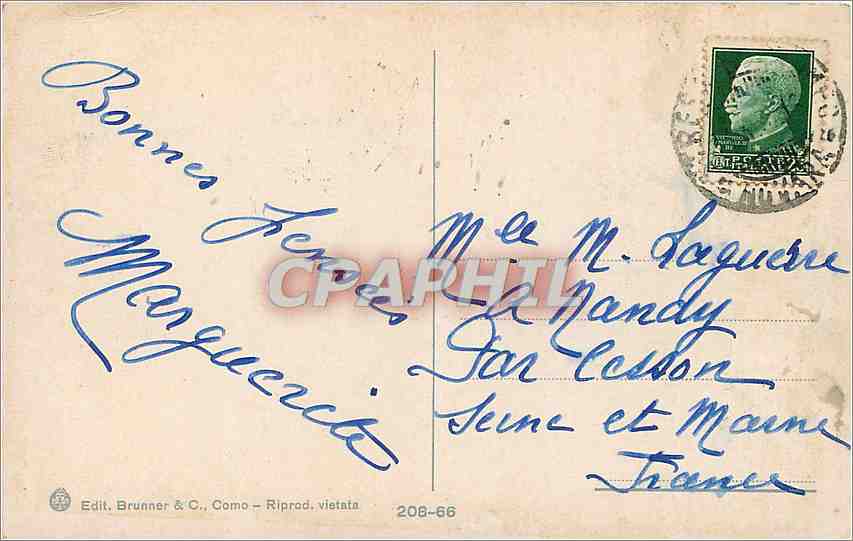 Bonnes
Pensées
Marguerite
Mlle M. Laguerre
à Nandy
Par Cesson
Seine et Marne
France
CPAPHIL
POSTE
Edit. Brunner & C., Como – Riprod. vietata
208-66